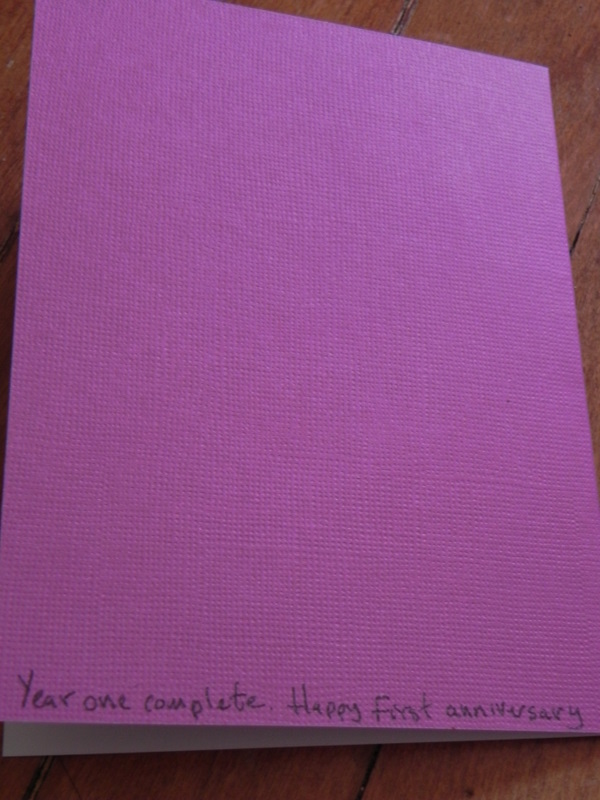 Year one complete. Happy First anniversary